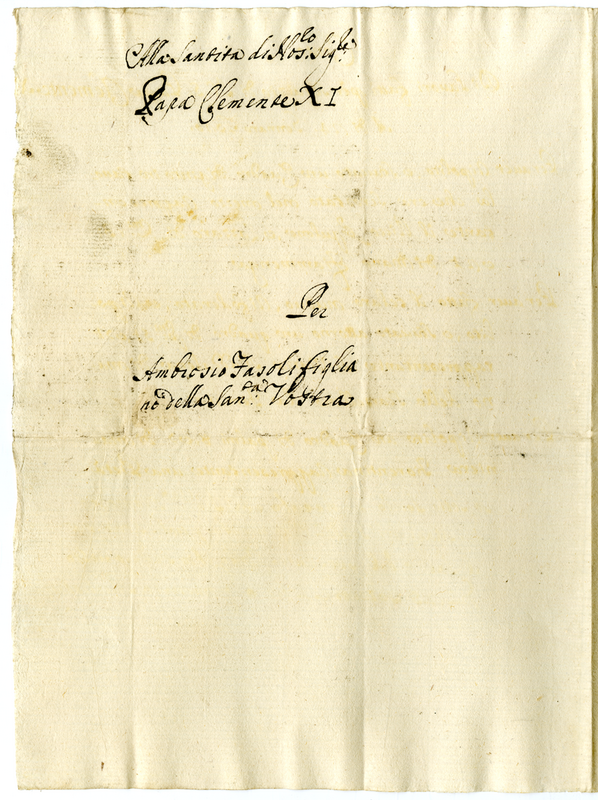 Alla Santita di Nos:ro Sig:re
Papa Clemente XI
Per
Ambrosio Fasoli figlia
no della San:ta Vostra